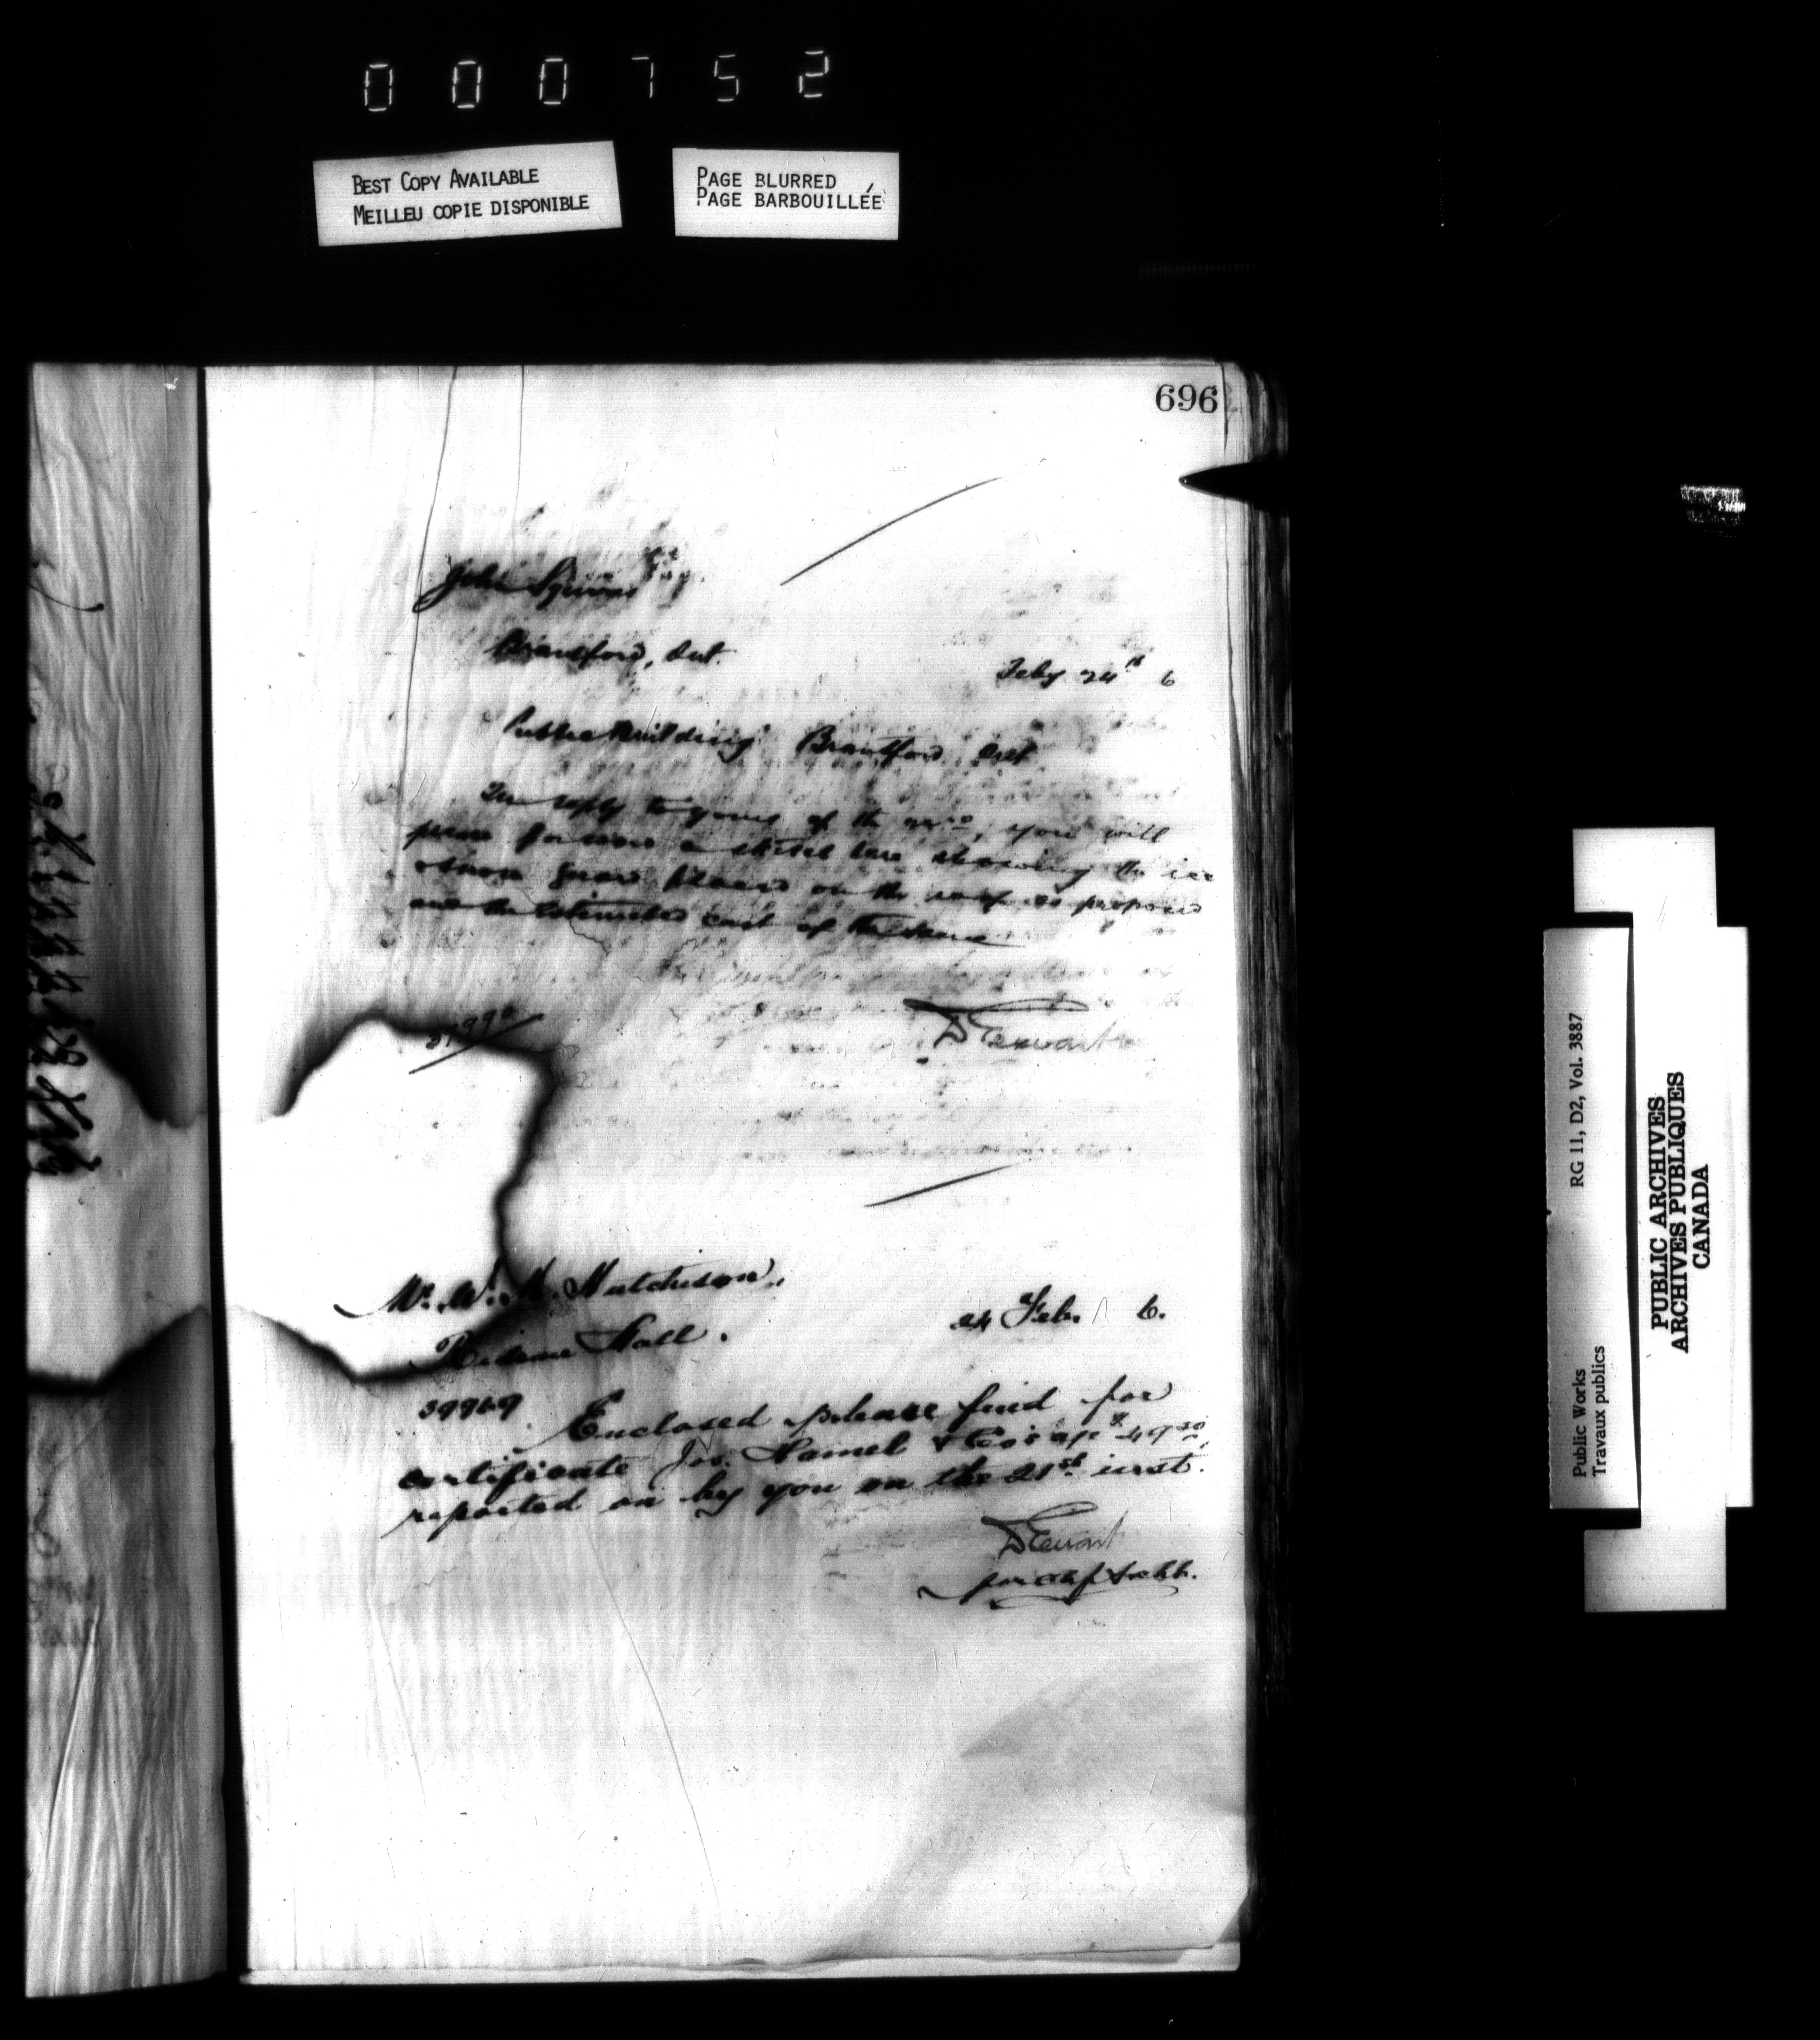 000752
BEST COPY AVAILABLE
MEILLEU COPIE DISPONIBLE
PAGE BLURRED
PAGE BARBOUILLÉE
696
John Esq.
Brantford, Ont.
Feby 24th 6
Public Building Brantford Ont
In reply to yours of the 22nd, you will
please forward a sketch here showing the ice
or snow guard placed on the roof as proposed
and the estimated cost of the same
DEwart
Mr. Wm. H. Hutchison,
24 Feb. 6.
Hall.
39969 Enclosed please find for
certificate Jos. Hamel & Co's a/c $ 49.50,
reported on by you on the 21st inst.
DEwart
for Chf Archt.
Public Works
Travaux publics
RG 11, D2, Vol. 3887
PUBLIC ARCHIVES
ARCHIVES PUBLIQUES
CANADA